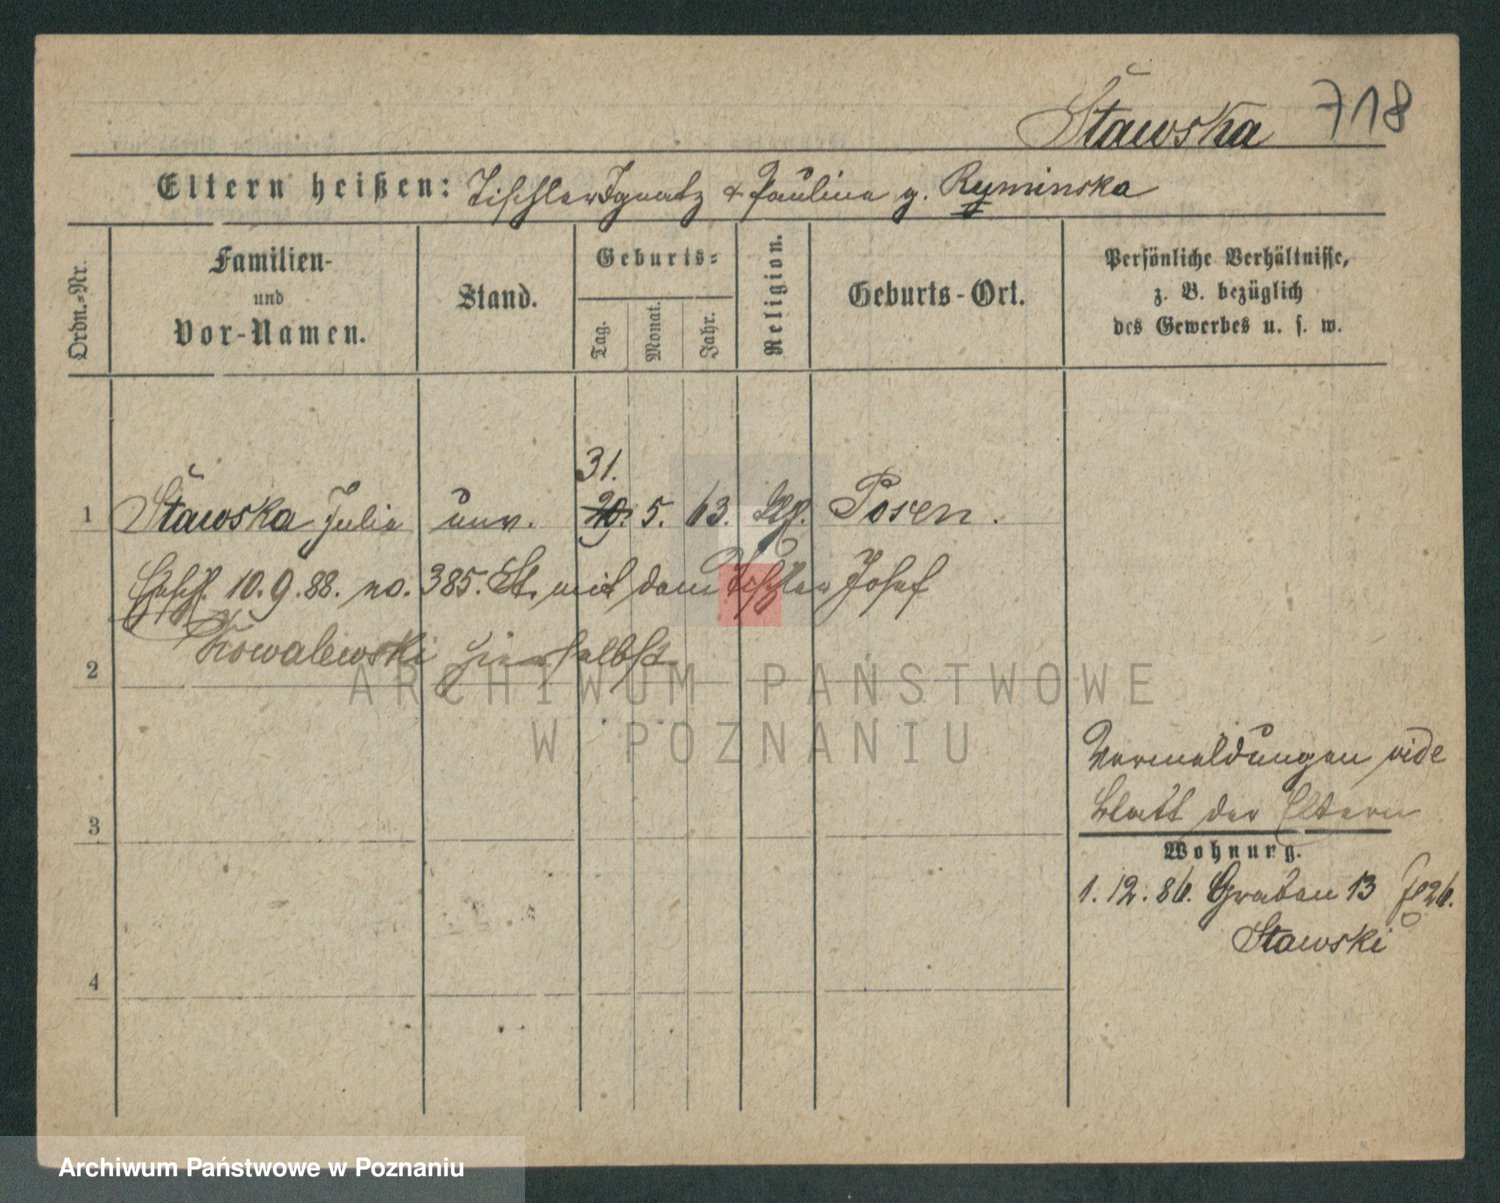 Stawska 718
Eltern heißen: Tischler Ignatz & Paulina g. Ryminska
Ordn.-Nr.
Familien- und Vor-Namen.
Stand.
Geburts-
Tag.
Monat.
Jahr.
Religion.
Geburts-Ort.
Persönliche Verhältnisse,
z. B. bezüglich
des Gewerbes u. s. w.
31.
1 Stawska Julia unv. 5. 63. Posen.
10.9.88. no. 385. St. mit dem Tischler Josef
Kowalewski hierselbst
2
ARCHIWUM PAŃSTWOWE
W POZNANIU
Vermeldungen vide
Blatt der Eltern
3
Wohnung.
1.12.86. Graben 13
Stawski
4
Archiwum Państwowe w Poznaniu